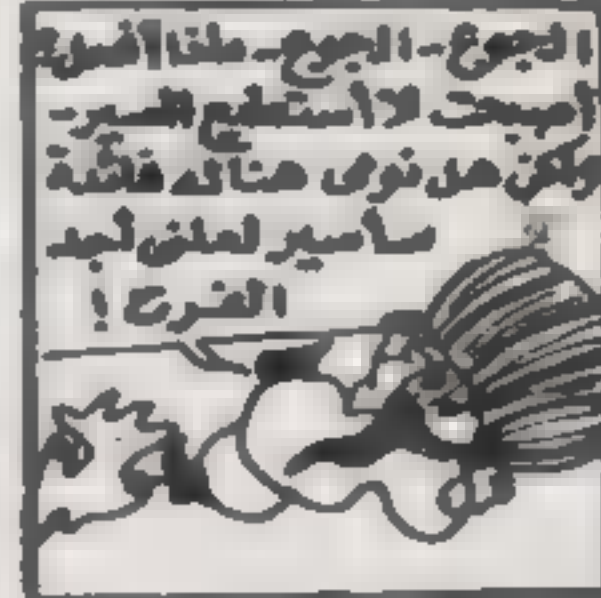 الجوع - الجوع -
أصبحت لا أستطيع السير -
ولكن هل هناك فائدة
سأسير لعلني أجد
الفرج !